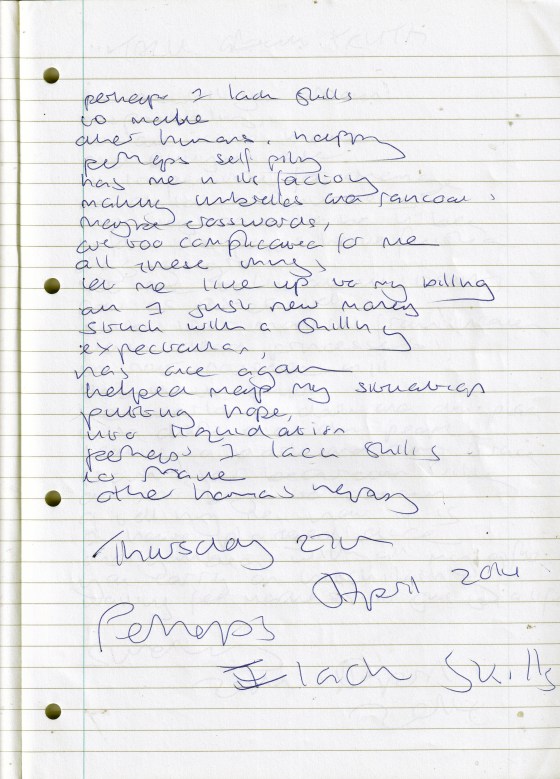 perhaps I lack skills
to make
other humans, happy
perhaps self pity
has me in its factory
making umbrellas and rancour,
maybe crosswords,
are too complicated for me
all these things
let me live up to my billing
am I just new money
struck with a shilling
expectation,
has once again
helped map my situation
putting hope,
into liquidation
perhaps I lack skills
to make
other humans happy
Thursday 27th
April 2014
Perhaps
I lack skills